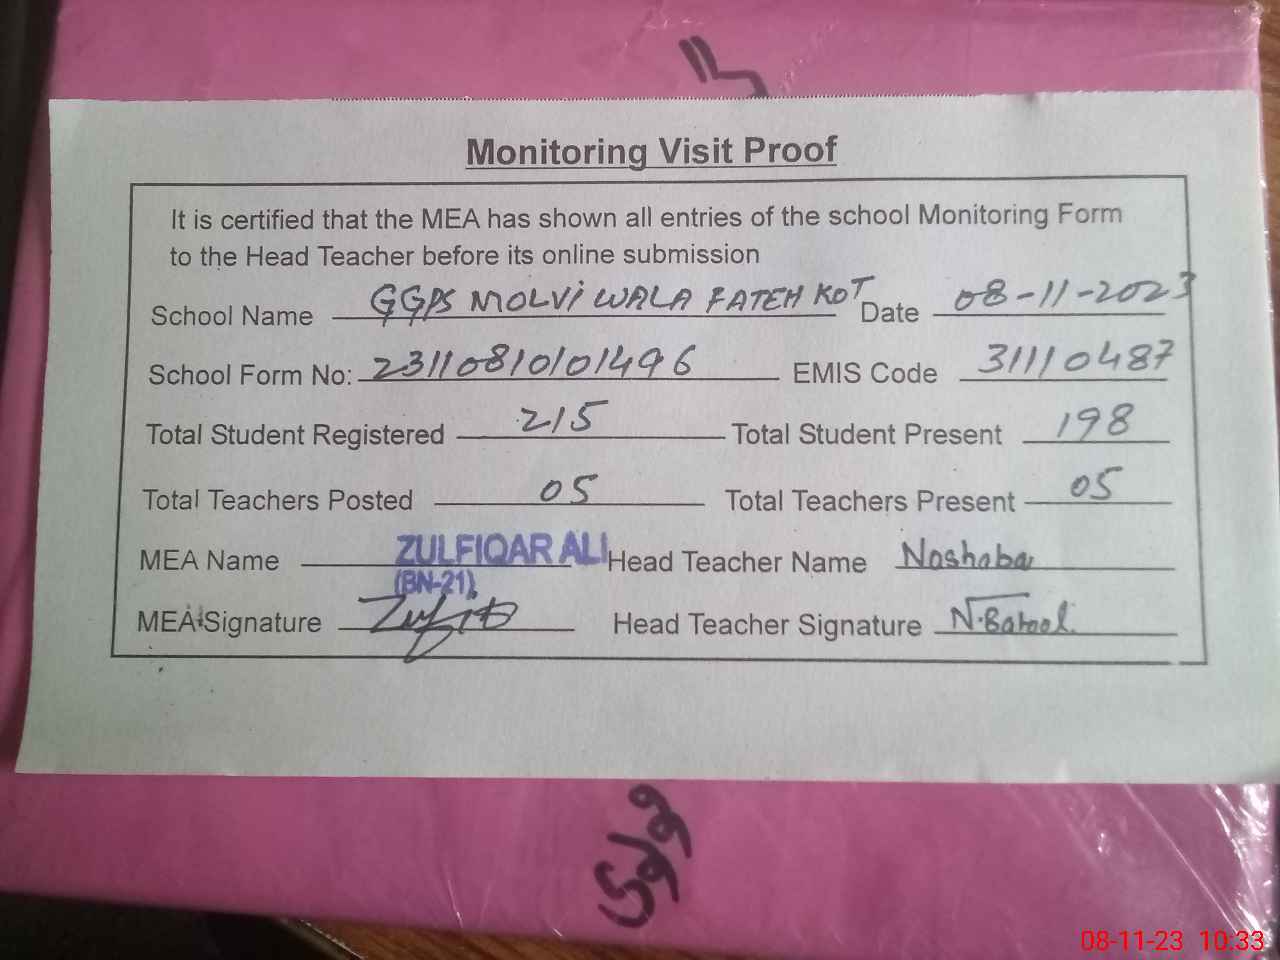 Monitoring Visit Proof
It is certified that the MEA has shown all entries of the school Monitoring Form
to the Head Teacher before its online submission
School Name GGPS MOLVI WALA FATEH KOT Date 08-11-2023
School Form No: 23110810101496 EMIS Code 31110487
Total Student Registered 215 Total Student Present 198
Total Teachers Posted 05 Total Teachers Present 05
MEA Name ZULFIQAR ALI Head Teacher Name Noshaba
(BN-21)
MEA Signature Head Teacher Signature N.Batool
08-11-23 10:33